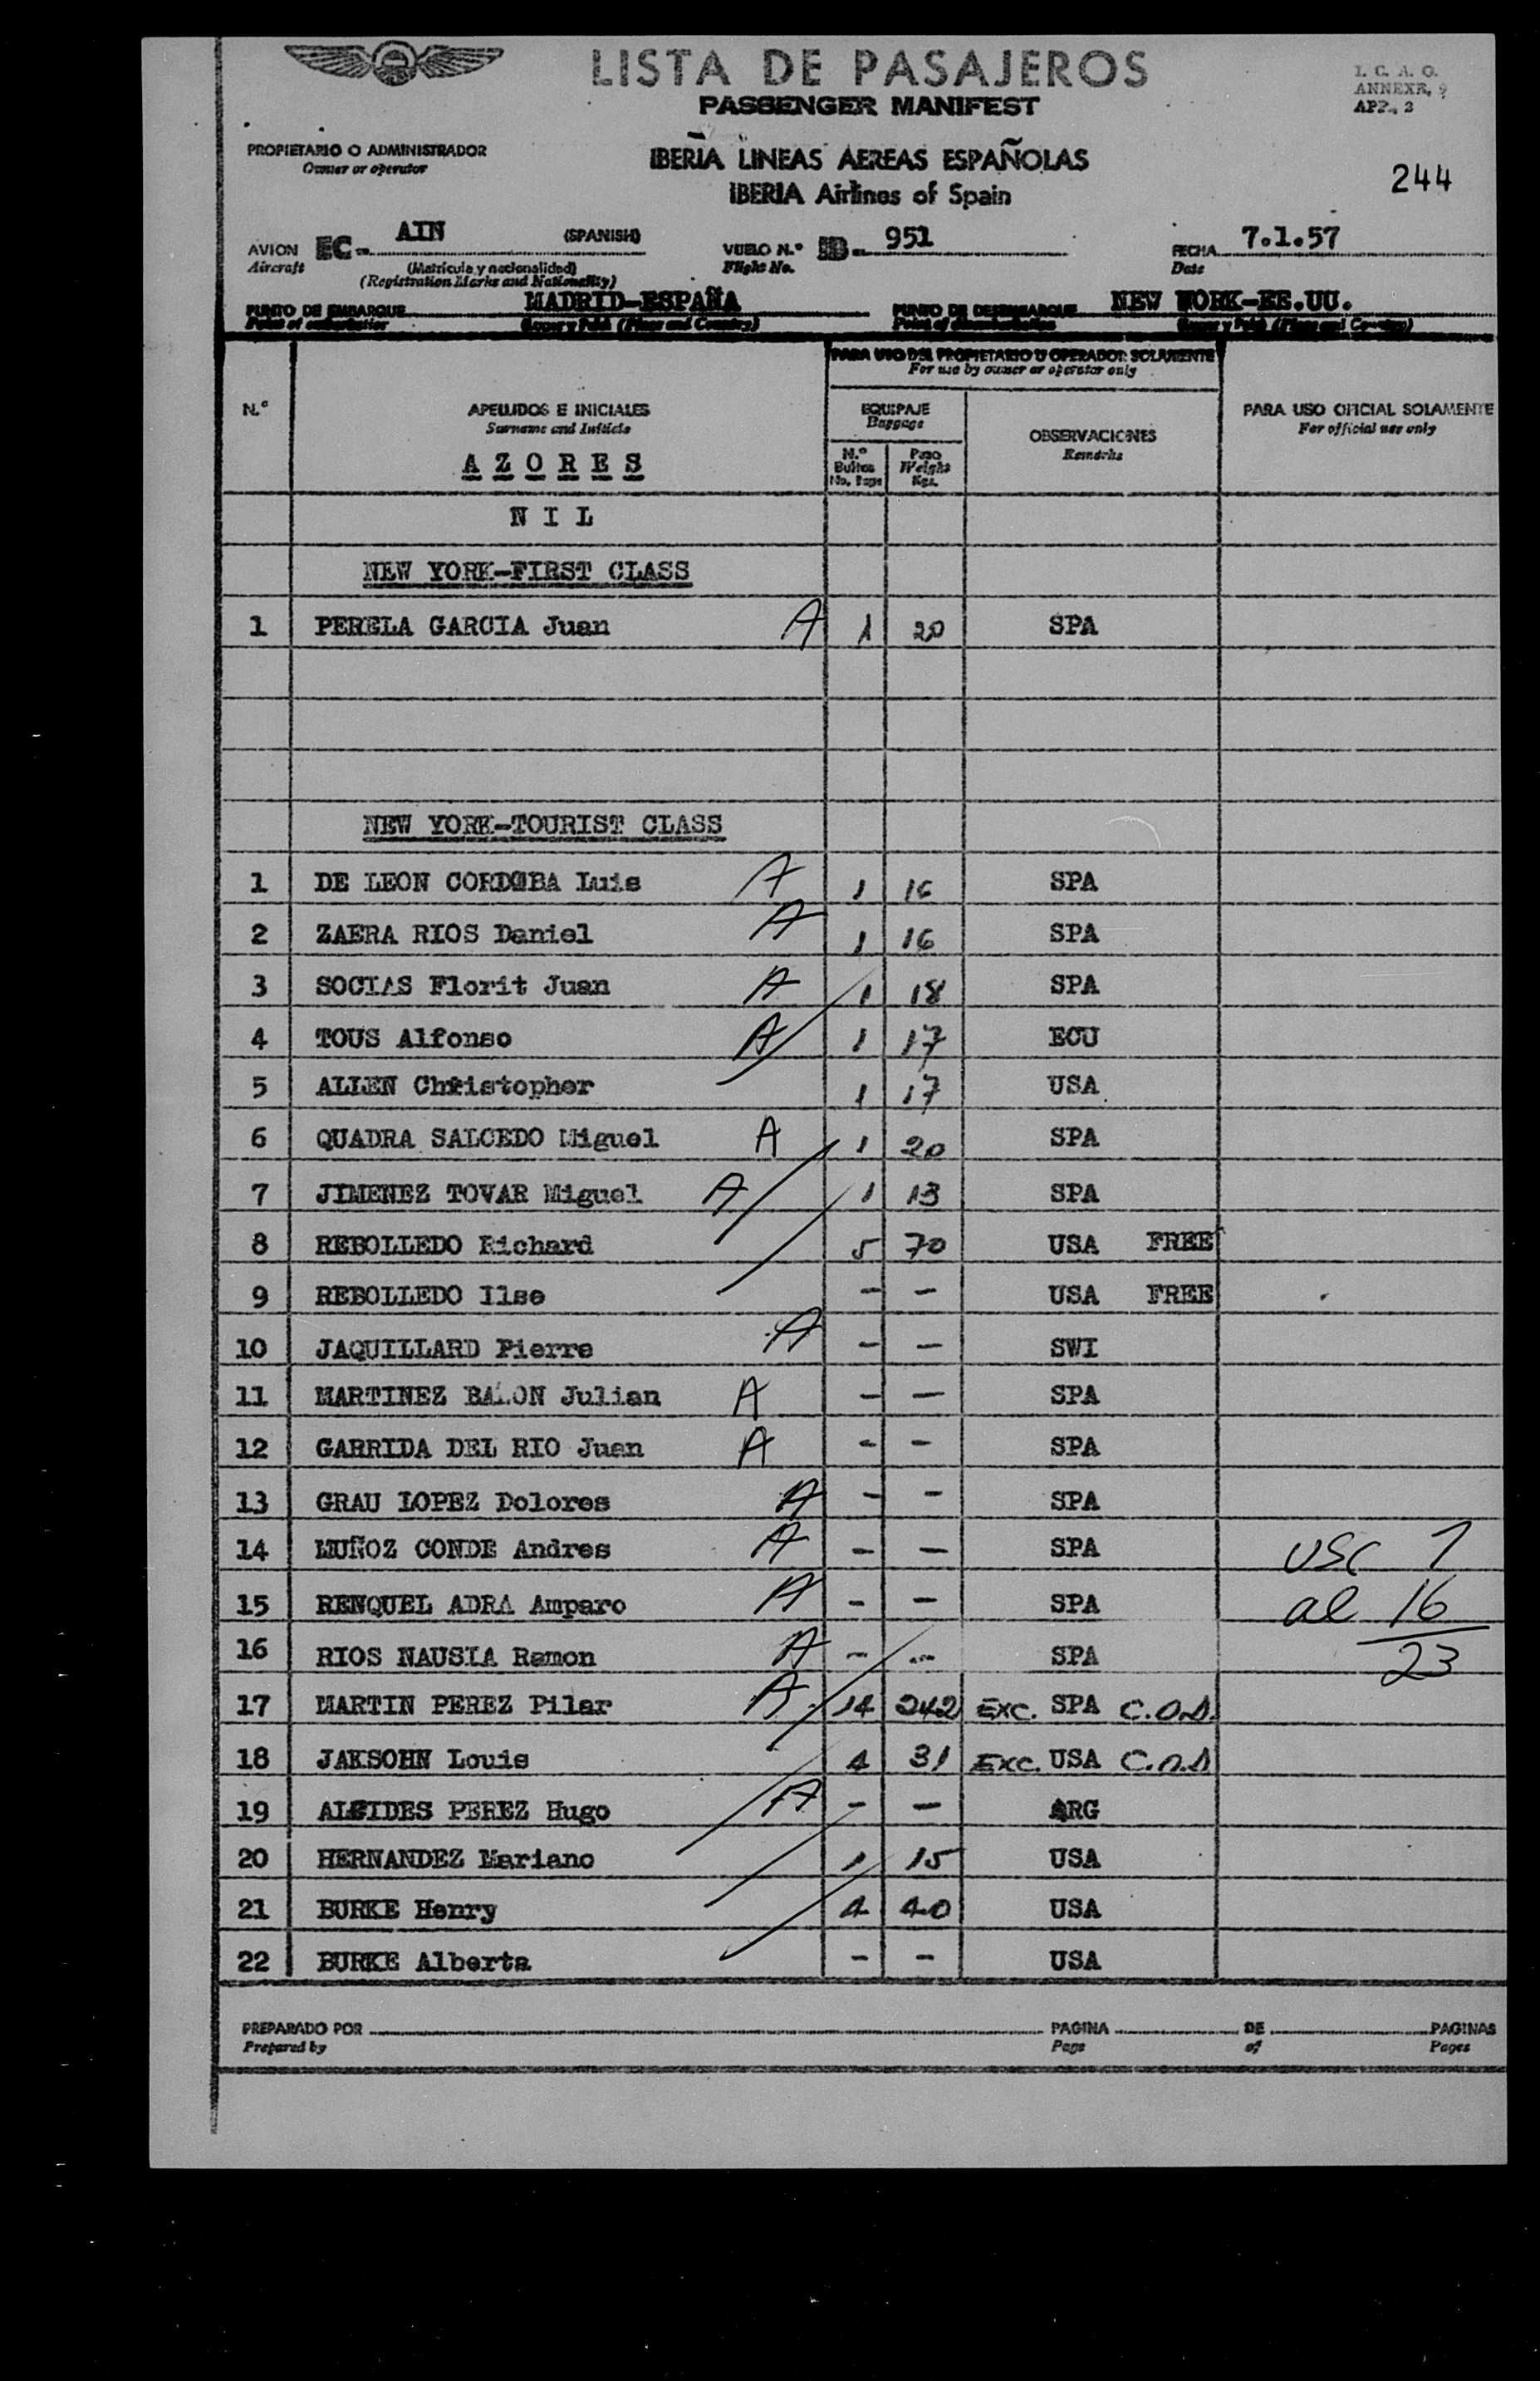 LISTA DE PASAJEROS
PASSENGER MANIFEST
I. C. A. O.
ANNEXE, 9
APP. 2
PROPIETARIO O ADMINISTRADOR
Owner or operator
IBERIA LINEAS AEREAS ESPAÑOLAS
IBERIA Airlines of Spain
244
AVION EC- AIN (SPANISH) VUELO N.º IB- 951 FECHA 7.1.57
Aircraft (Matrícula y nacionalidad) Flight No. Date
(Registration Marks and Nationality)
PUNTO DE EMBARQUE MADRID-ESPAÑA PUNTO DE DESEMBARQUE NEW YORK-EE.UU.
Point of embarkation (Place and Country) Point of disembarkation (Place and Country)
PARA USO DEL PROPIETARIO U OPERADOR SOLAMENTE
For use by owner or operator only
N.º APELLIDOS E INICIALES EQUIPAJE OBSERVACIONES PARA USO OFICIAL SOLAMENTE
Surname and Initials Baggage Remarks For official use only
AZORES N.º Bultos Peso
No. Bags Weight Kgs.
NIL
NEW YORK-FIRST CLASS
1 PERELA GARCIA Juan A 1 20 SPA
NEW YORK-TOURIST CLASS
1 DE LEON CORDOBA Luis A 1 16 SPA
2 ZAERA RIOS Daniel A 1 16 SPA
3 SOCIAS Florit Juan A 1 18 SPA
4 TOUS Alfonso A 1 17 ECU
5 ALLEN Christopher 1 17 USA
6 QUADRA SALCEDO Miguel A 1 20 SPA
7 JIMENEZ TOVAR Miguel A 1 13 SPA
8 REBOLLEDO Richard 5 70 USA FREE
9 REBOLLEDO Ilse - - USA FREE
10 JAQUILLARD Pierre A - - SWI
11 MARTINEZ BALON Julian A - - SPA
12 GARRIDA DEL RIO Juan A - - SPA
13 GRAU LOPEZ Dolores A - - SPA
14 MUÑOZ CONDE Andres A - - SPA
15 RENQUEL ADRA Amparo A - - SPA al 16
16 RIOS NAUSIA Ramon A - - SPA 23
17 MARTIN PEREZ Pilar A 14 242 EXC. SPA C.O.D.
18 JAKSOHN Louis 4 31 EXC. USA C.O.D
19 ALCIDES PEREZ Hugo A - - ARG
20 HERNANDEZ Mariano 1 15 USA
21 BURKE Henry 4 40 USA
22 BURKE Alberta - - USA
PREPARADO POR PAGINA DE PAGINAS
Prepared by Page of Pages